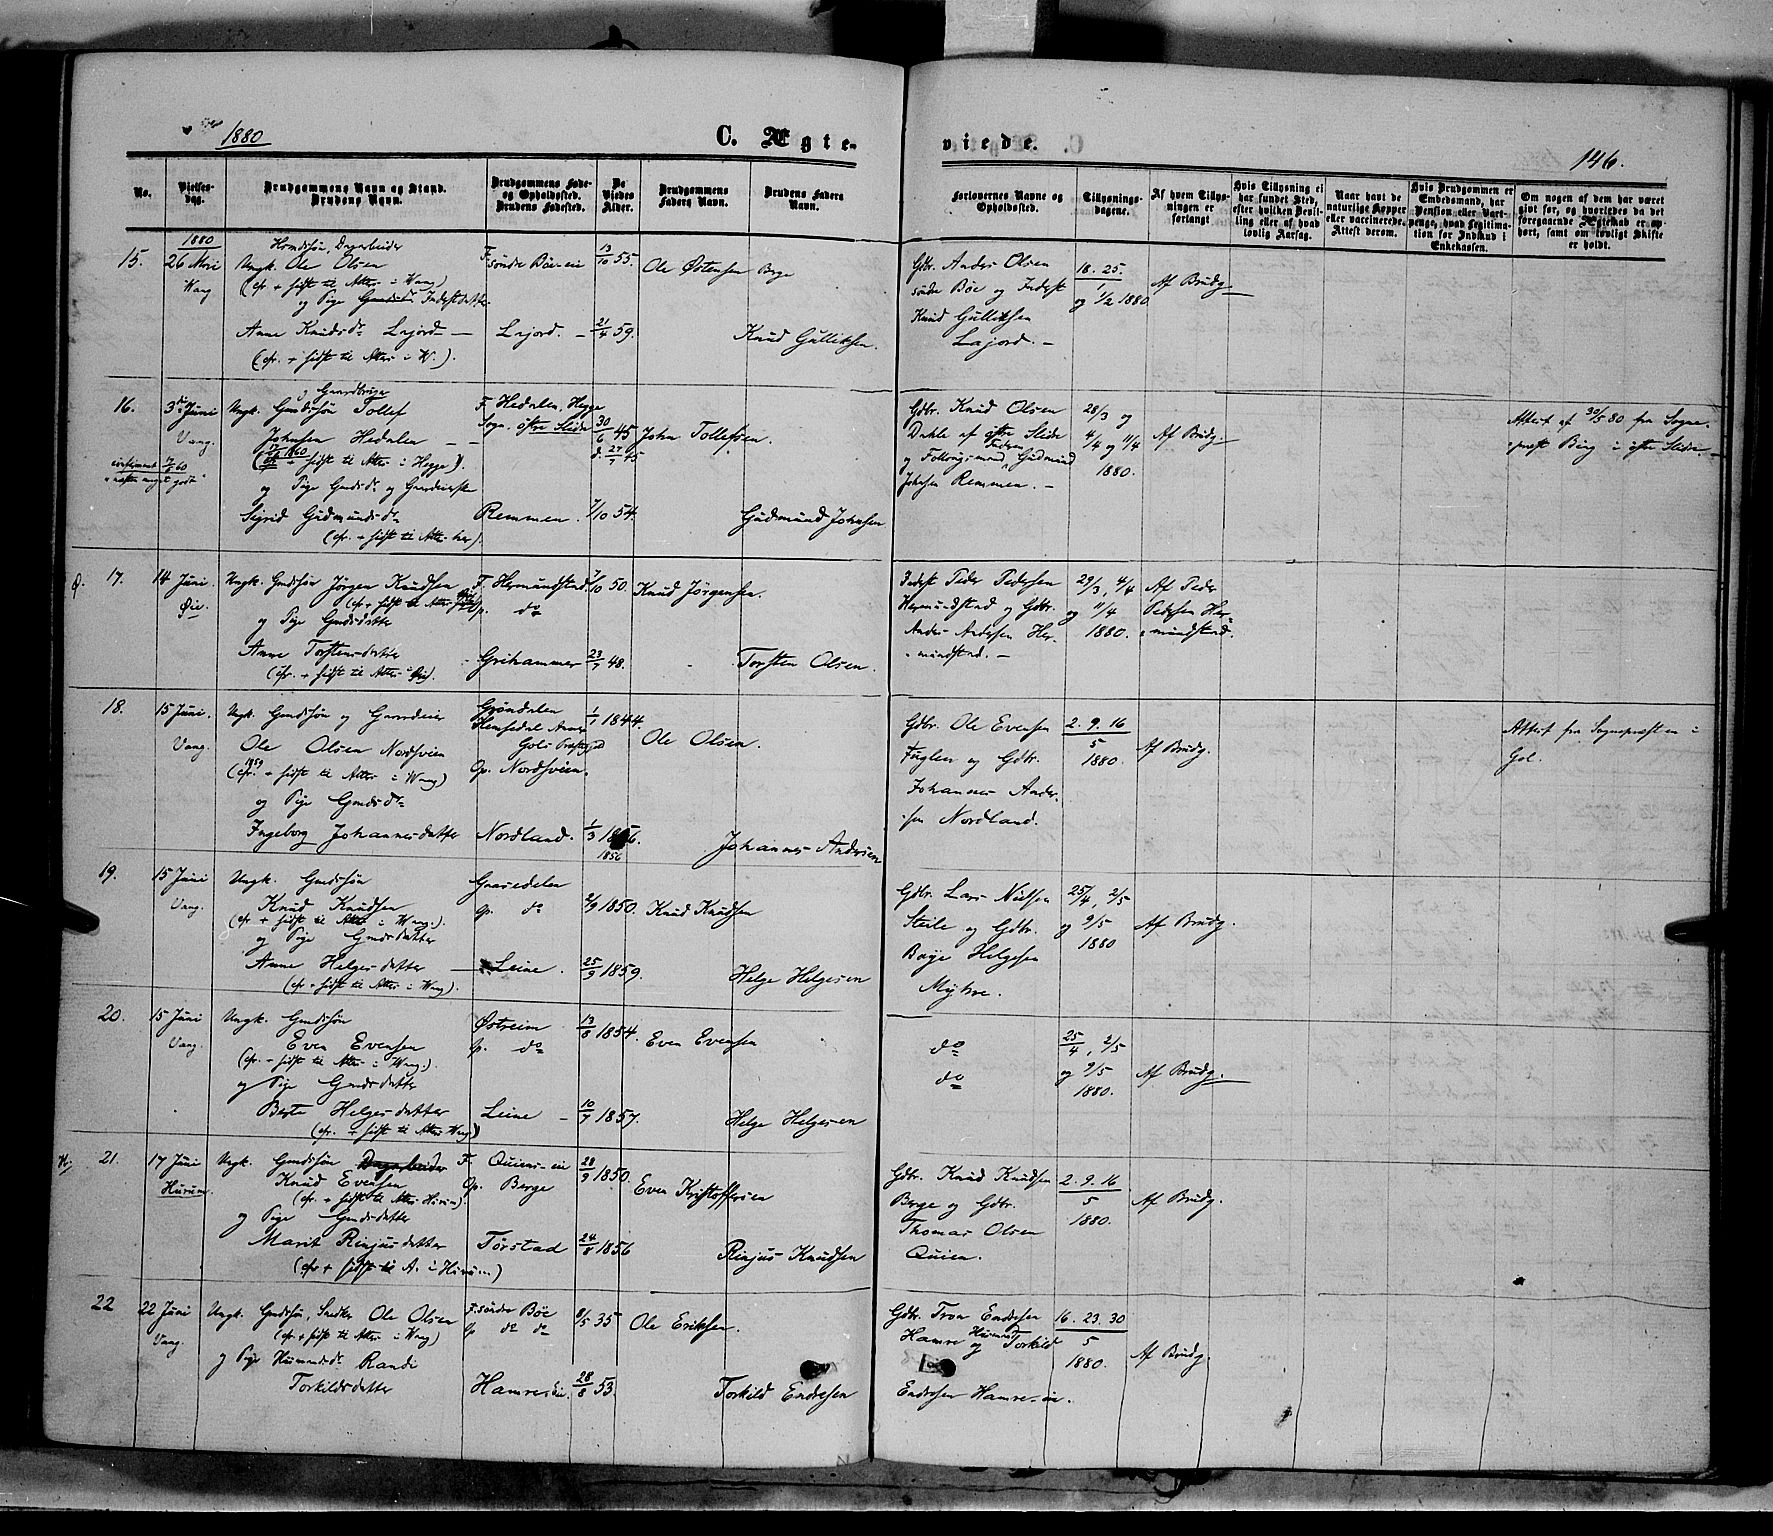 1880
C. Ægte-
viede.
146.
No.
Vielses-
dag.
Brudgommens Navn og Stand.
Brudens Navn.
Brudgommens Føde-
og Opholdssted.
Brudens Fødested.
De
Viedes
Alder.
Brudgommens
Faders Navn.
Brudens Faders
Navn.
Forlovernes Navne og
Opholdssted.
Tillysnings-
dagene.
Af hvem Tillys-
ningen er
forlangt
Hvis Tillysning ei
har fundet Sted,
efter hvilken Bevil-
ling eller af hvad
lovlig Aarsag.
Naar havt de
naturlige Kopper
eller vaccinerede.
Attest derom.
Hvis Brudgommen er
Embedsmand, har
Pension eller Vart-
penge, hvad Legitima-
tion for Indskud i
Enkekassen.
Om nogen af dem har været
gift før, og hvorledes da det
foregaaende Ægteskab er op-
hørt, samt om lovligt Skifte
er holdt.
15.
1880
26 Mai
Vang
Dagarbeider
Ungk. Ole Olsen
(cfr. + sidst til Alter i Vang)
og Pige Inderstdatter
Anne Knudsdr Lajord
(cfr. + sidst til Alter i W.).
F. søndre Bøe-eie
Lajord.
13/10 55.
21/4 59.
Ole Østensen Berge
Knud Gulliksen.
Gdbr. Anders Olsen
søndre Bøe og Inderst
Knud Gulliksen
Lajord. -
18. 25.
1
og 1/2 1880
Af Brudg.
16.
3die Juni
Vang.
og Gaardbruger
Ungk. Gmdssøn Tollef
Johnsen Hedalen
(cfr. + sidst til Alter i Hegge).
og Pige Gmdsdr og Gaardeierske
Sigrid Gudmundsdr
(cfr. + sidst til Alter her).
F. Hedalen, Hegge
Sogn. øftre Slidre
Remmen.
30/6 45
d. 27/7 45
7/10 54.
John Tollefsen.
Gudmund Johnsen
Gdbr. Knud Olsen
Dahle af øftre Slidre
og Gudmund
Johnsen Remmen. -
28/3 og
4/4 og 11/4
1880.
Af Brudg.
Attest af 30/5 80 fra Sogne-
præst Bing i øftre Slidre.
Ø.
17.
14 Juni.
Øie.
Ungk. Gmdssøn Jørgen Knudsen
(cfr + sidst til Alter Øie)
og Pige Gmdsdatter
Anne Torstensdatter
(cfr. + sidst til Alter i Øie).
F. Hermundstad
Op. do
Grihammer
7/10 50.
23/7 48.
Knud Jørgensen.
Torsten Olsen.
Inderst Peder Pedersen
Hermundstad og Gdbr.
Anders Andersen Her-
mundstad. -
29/3, 4/4
og 11/4
1880.
Af Peder
Pedersen Her-
mundstad.
18.
15 Juni.
Vang.
Ungk. Gmdssøn og Gaardeier
Ole Olsen Nordsveen
(cfr. 1859 + sidst til Alter i Wang)
og Pige Gmdsdr
Ingeborg Johannesdatter
Grøndalen
Hemsedal Annex
Gols Præstegjd
Op. Nordsveien.
Nordland.
1/7 1844.
1/3
1856
Ole Olsen.
Johannes Andersen
Gdbr. Ole Evensen
Fuglen og Gdbr.
Johannes Ander-
sen Nordland.
2. 9. 16
5
1880.
Af Brudg.
Attest fra Sognepræsten i
Gol.
19.
15 Juni
Vang.
Ungk. Gmdssøn
Knud Knudsen
(cfr + sidst til Alter i Wang.).
og Pige Gmdsdatter
Anne Helgesdatter
(cfr. + sidst til Alter i Wang).
Gravedalen
Op. do
Leine.
2/9 1850.
25/9 1859.
Knud Knudsen
Helge Helgesen
Gdbr. Lars Nielsen
Steile og Gdbr.
Boye Helgesen
Myhre.
25/4, 2/5
og 9/5
1880
Af Brudg.
20.
15 Juni
Vang.
Ungk. Gmdssøn
Even Evensen
(cfr. + sidst til Alter i Wang.).
og Pige Gmdsdatter
Berte Helgesdatter
(cfr. + sidst til Alter Wang)
Østreim
Op. do
Leine
13/8 1854.
10/7 1857.
Even Evensen
Helge Helgesen
do
do
25/4, 2/5
og 9/5
1880.
Af Brudg.
21.
17 Juni
Hurum.
Ungk. Gmdssøn Dagarbeider
Knud Evensen
(cfr. + sidst til Alter Hurum).
og Pige Gmdsdatter
Marit Rinjusdatter
(cfr + sidst til A. i Hurum)
F. Quiens-eie
Op. Berge
Tørstad
28/9 1850.
24/8 1856
Even Kristoffersen
Rinjus Knudsen
Gdbr. Knud Knudsen
Berge og Gdbr.
Thomas Olsen
Quien.
2. 9. 16
5
1880.
Af Brudg.
22
22 Juni
Vang.
Ungk. Gmdssøn, Snedker Ole Olsen
(cfr. + sidst til Alter i Wang)
og Pige Huusmdsdr Randi
Torkildsdatter
F. søndre Bøe
Op do do
Hamres-eie.
8/5 35
28/8 53.
Ole Eriksen.
Torkild Endresen
Gdbr. Tron Endresen
Hamre og Huusmd Torkild
Endresen Hamre-eie.
16. 23. 30
5
1880.
Af Brudg.